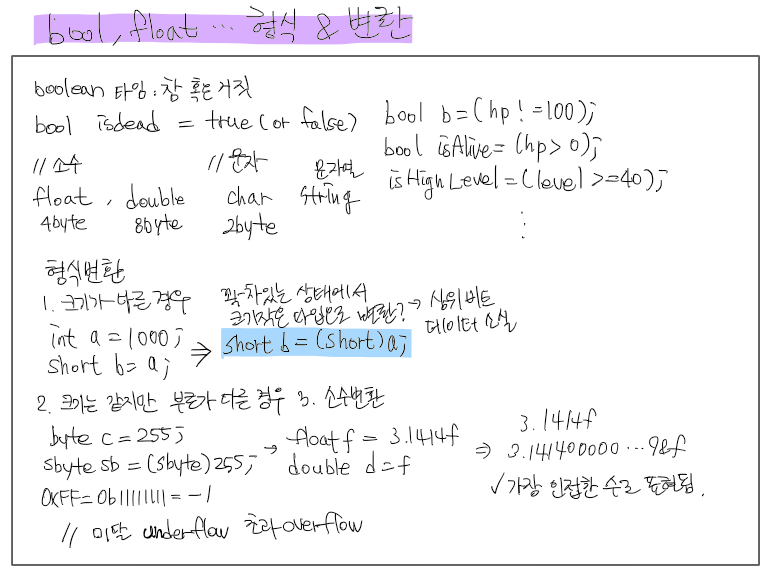 bool, float ... 형식 & 변환
boolean 타입 : 참 혹은 거짓
bool isdead = true (or false)
bool b = (hp != 100);
bool isAlive = (hp > 0);
isHighLevel = (level >= 40);
⋮
// 소수
float, double
4byte 8byte
// 문자
char
2byte
문자열
string
형식변환
1. 크기가 다른 경우
int a = 1000;
short b = a;
꽉 차있는 상태에서
크기작은 타입으로 변환? → 상위 비트
데이터 소실
⇒ short b = (short) a;
2. 크기는 같지만 부호가 다를 경우
byte c = 255;
sbyte sb = (sbyte) 255;
0xFF = 0b11111111 = -1
// 미달 underflow 초과 overflow
3. 소수변환
→ float f = 3.1414f
double d = f
⇒ 3.1414f
3.141400000 ... 98f
✓ 가장 인접한 수로 표현됨.